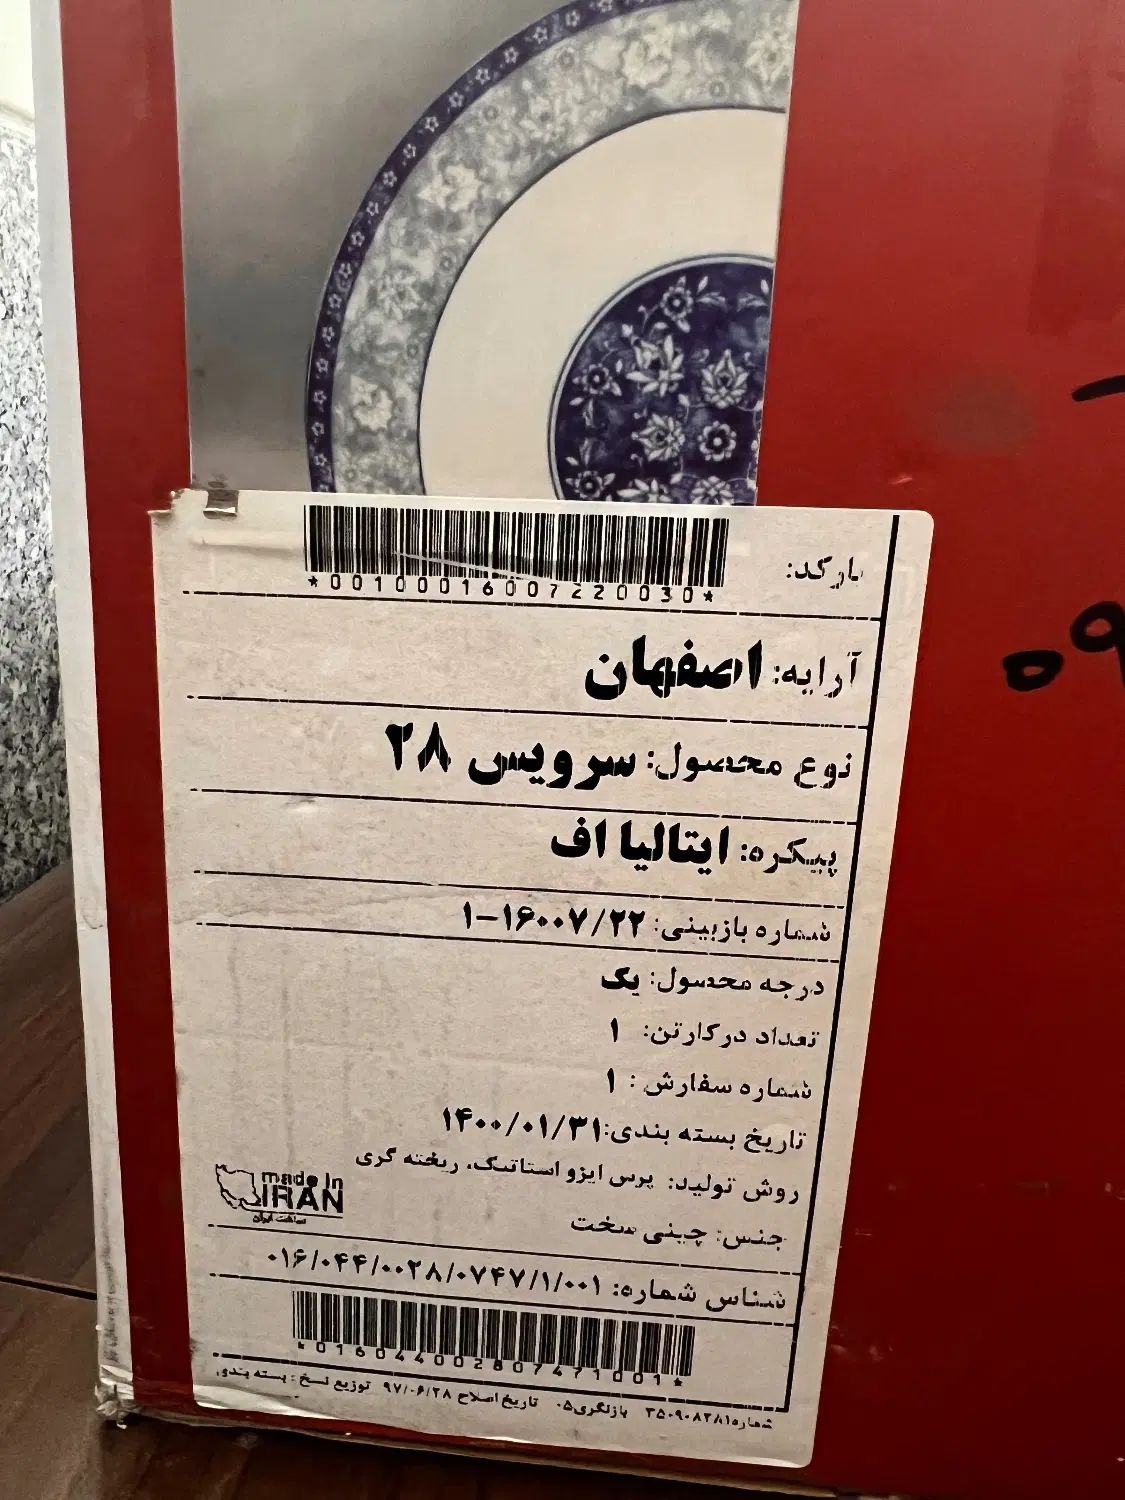 بارکد:
*00100016007220030*
آرایه: اصفهان
نوع محصول: سرویس ۲۸
پیکره: ایتالیا اف
شماره بازبینی: ۱-۱۶۰۰۷/۲۲
درجه محصول: یک
تعداد درکارتن: ۱
شماره سفارش: ۱
تاریخ بسته بندی: ۱۴۰۰/۰۱/۳۱
روش تولید: پرس ایزو استاتیک، ریخته گری
جنس: چینی سخت
made in
IRAN
ساخت ایران
شناس شماره: ۰۱۶/۰۴۴/۰۰۲۸/۰۷۴۷/۱/۰۰۱
*0160440028074710​01*
بازنگری۰۵ تاریخ اصلاح ۹۷/۰۶/۲۸ توزیع نسخ: بسته بندی